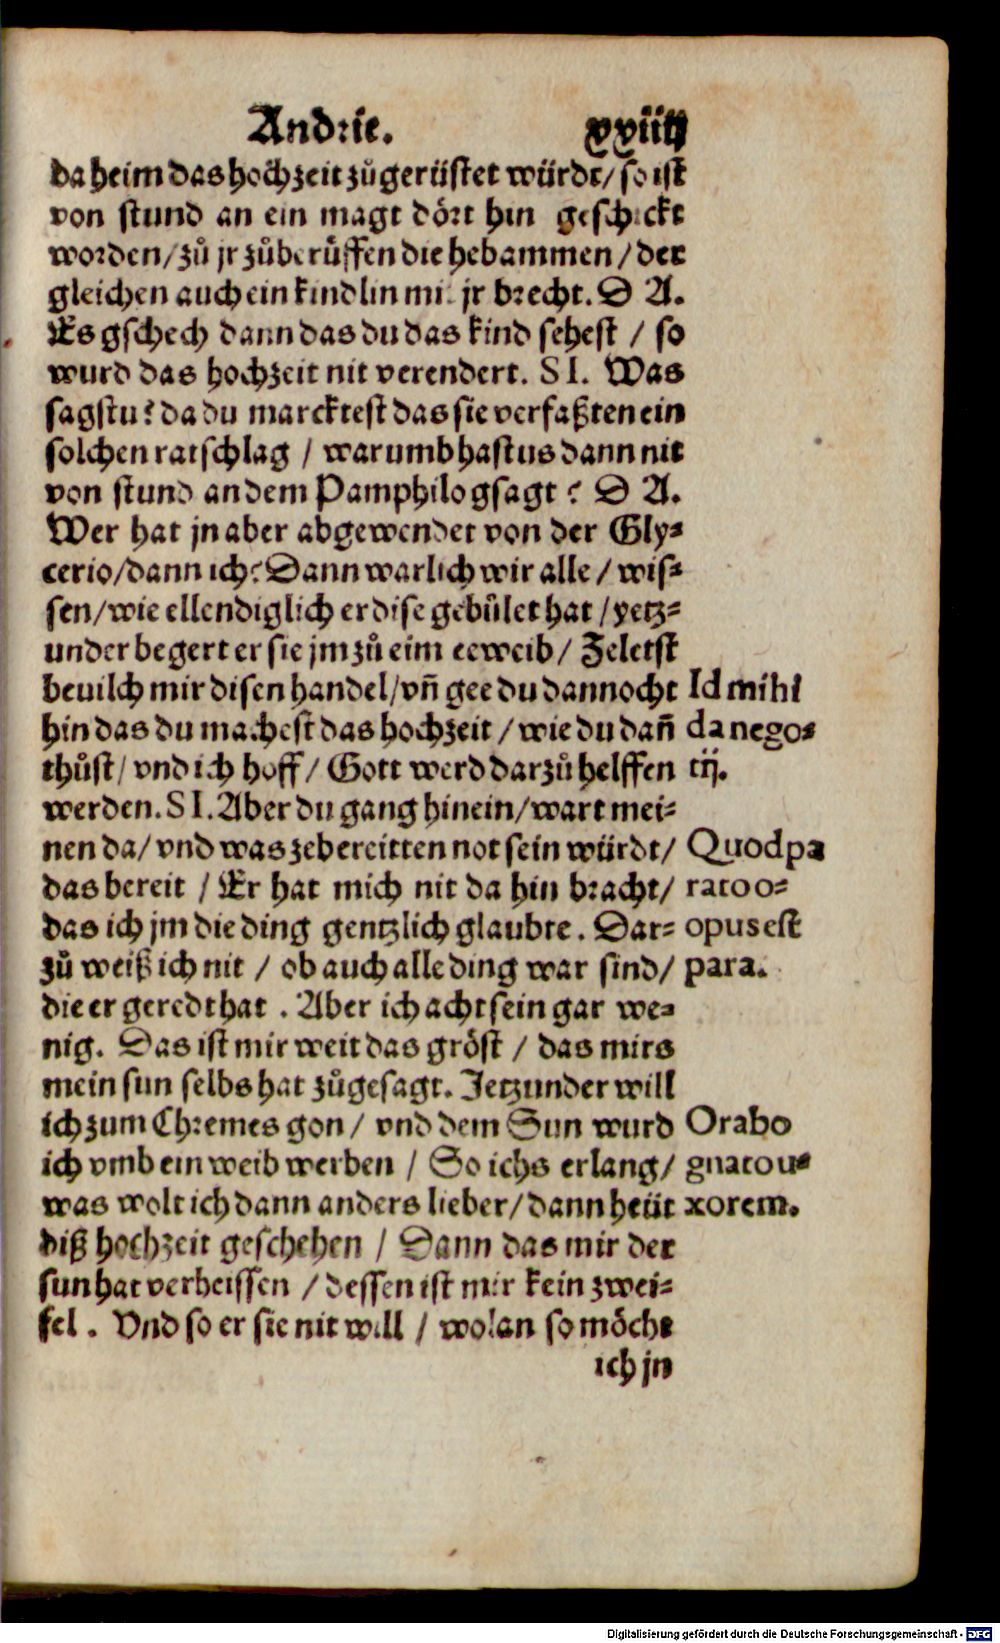 Andrie. xxiiij
da heim das hochzeit zůgerüstet würdt/ so ist
von stund an ein magt dört hin geschickt
worden/ zů jr zůberůffen die hebammen / der
gleichen auch ein kindlin mit jr brecht. D A.
Es gschech dann das du das kind sehest / so
wurd das hochzeit nit verendert. S I. Was
sagstu? da du marcktest das sie verfaßten ein
solchen ratschlag / warumb hastus dann nit
von stund an dem Pamphilo gsagt ? D A.
Wer hat jn aber abgewendet von der Gly-
cerio/ dann ich? Dann warlich wir alle / wis-
sen/ wie ellendiglich er dise gebůlet hat / yetz-
under begert er sie jm zů eim eeweib/ Zeletst
bevilch mir disen handel/ vñ gee du dannocht
hin das du machest das hochzeit / wie du dañ
thůst/ vnd ich hoff / Gott werd darzů helffen
werden. S I. Aber du gang hinein/ wart mei-
nen da/ vnd was zebereitten not sein würdt/
das bereit / Er hat mich nit da hin bracht/
das ich jm die ding gentzlich glaubte. Dar-
zů weiß ich nit / ob auch alle ding war sind/
die er geredt hat . Aber ich acht sein gar we-
nig. Das ist mir weit das gröst / das mirs
mein sun selbs hat zůgesagt. Jetzunder will
ich zum Chremes gon / vnd dem Sun wurd
ich vmb ein weib werben / So ichs erlang/
was wolt ich dann anders lieber/ dann heüt
diß hochzeit geschehen / Dann das mir der
sun hat verheissen / dessen ist mir kein zwei-
fel . Vnd so er sie nit will / wolan so möcht
ich jn
Id mihi
da nego-
tij.
Quod pa
rato o-
opus est
para.
Orabo
gnato u-
xorem.
Digitalisierung gefördert durch die Deutsche Forschungsgemeinschaft - DFG